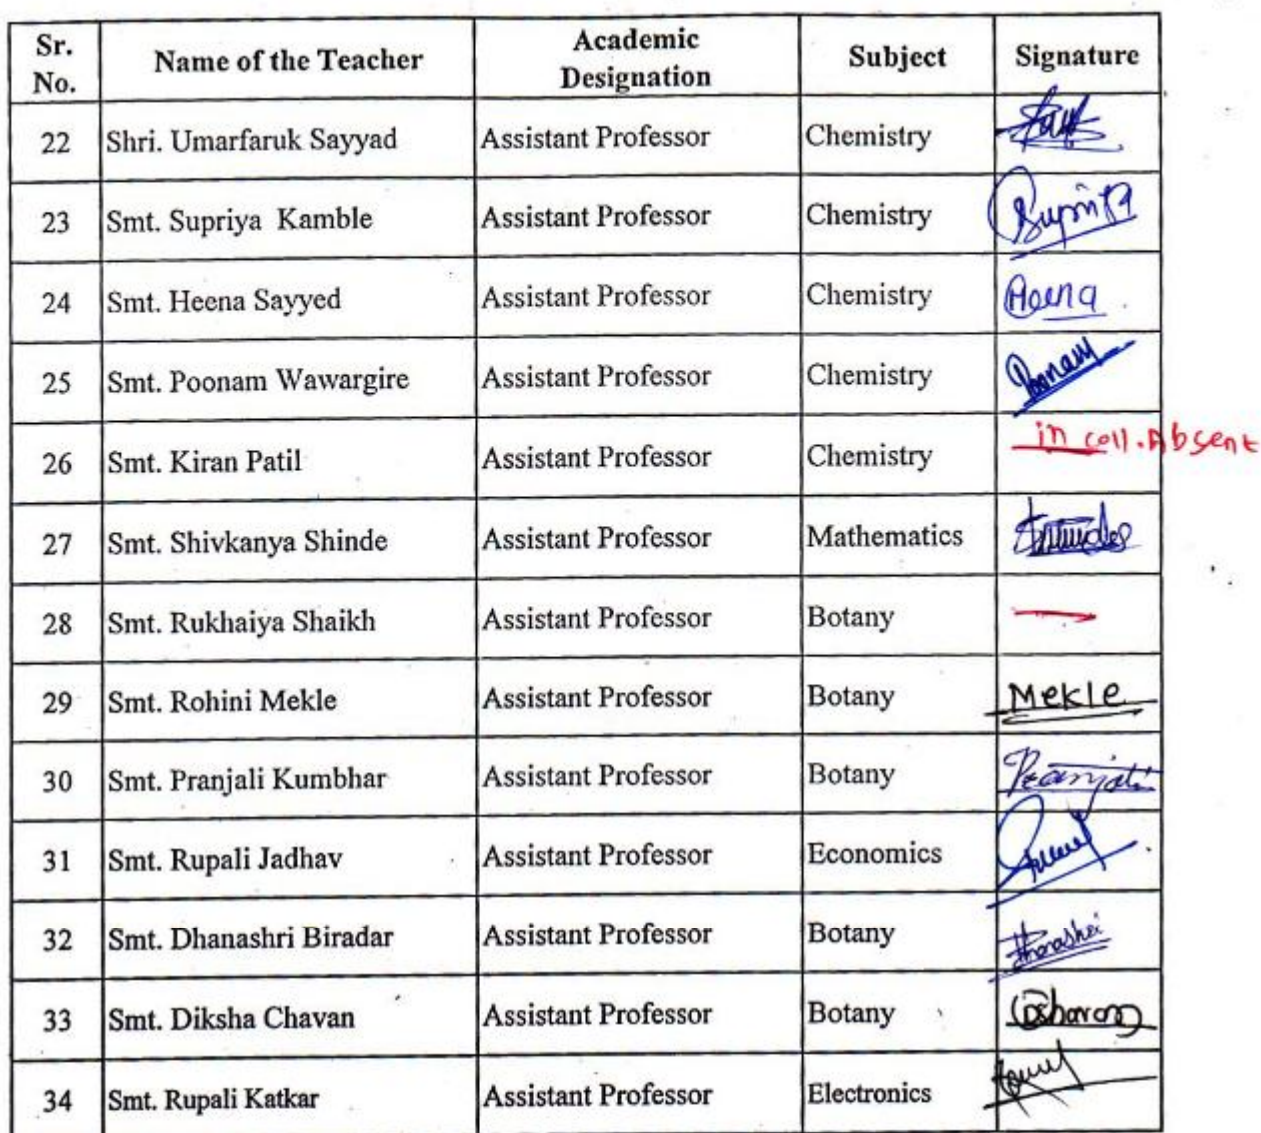 Sr. No. Name of the Teacher Academic Designation Subject Signature
22 Shri. Umarfaruk Sayyad Assistant Professor Chemistry
23 Smt. Supriya Kamble Assistant Professor Chemistry Supriya
24 Smt. Heena Sayyed Assistant Professor Chemistry Heena
25 Smt. Poonam Wawargire Assistant Professor Chemistry Poonam
26 Smt. Kiran Patil Assistant Professor Chemistry in coll. Absent
27 Smt. Shivkanya Shinde Assistant Professor Mathematics
28 Smt. Rukhaiya Shaikh Assistant Professor Botany
29 Smt. Rohini Mekle Assistant Professor Botany Mekle
30 Smt. Pranjali Kumbhar Assistant Professor Botany Pranjali
31 Smt. Rupali Jadhav Assistant Professor Economics
32 Smt. Dhanashri Biradar Assistant Professor Botany
33 Smt. Diksha Chavan Assistant Professor Botany
34 Smt. Rupali Katkar Assistant Professor Electronics